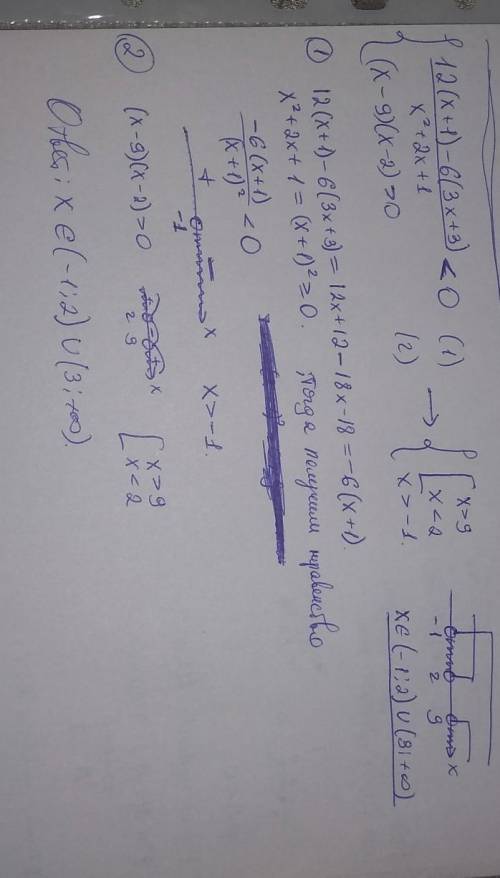 { 12(x+1)-6(3x+3) / x²+2x+1 < 0 (1)
(x-9)(x-2)>0 (2)
→ { [ x>9
x<2
x>-1.
-1 2 9 x
x∈(-1;2)∪(9;+∞)
① 12(x+1)-6(3x+3)=12x+12-18x-18=-6(x+1).
x²+2x+1=(x+1)²=0. Тогда получим неравенство
-6(x+1) / (x+1)² < 0
+ -
-1 x x>-1.
② (x-9)(x-2)>0
+ - +
2 9 x
[ x>9
x<2
Ответ: x∈(-1;2)∪(9;+∞).